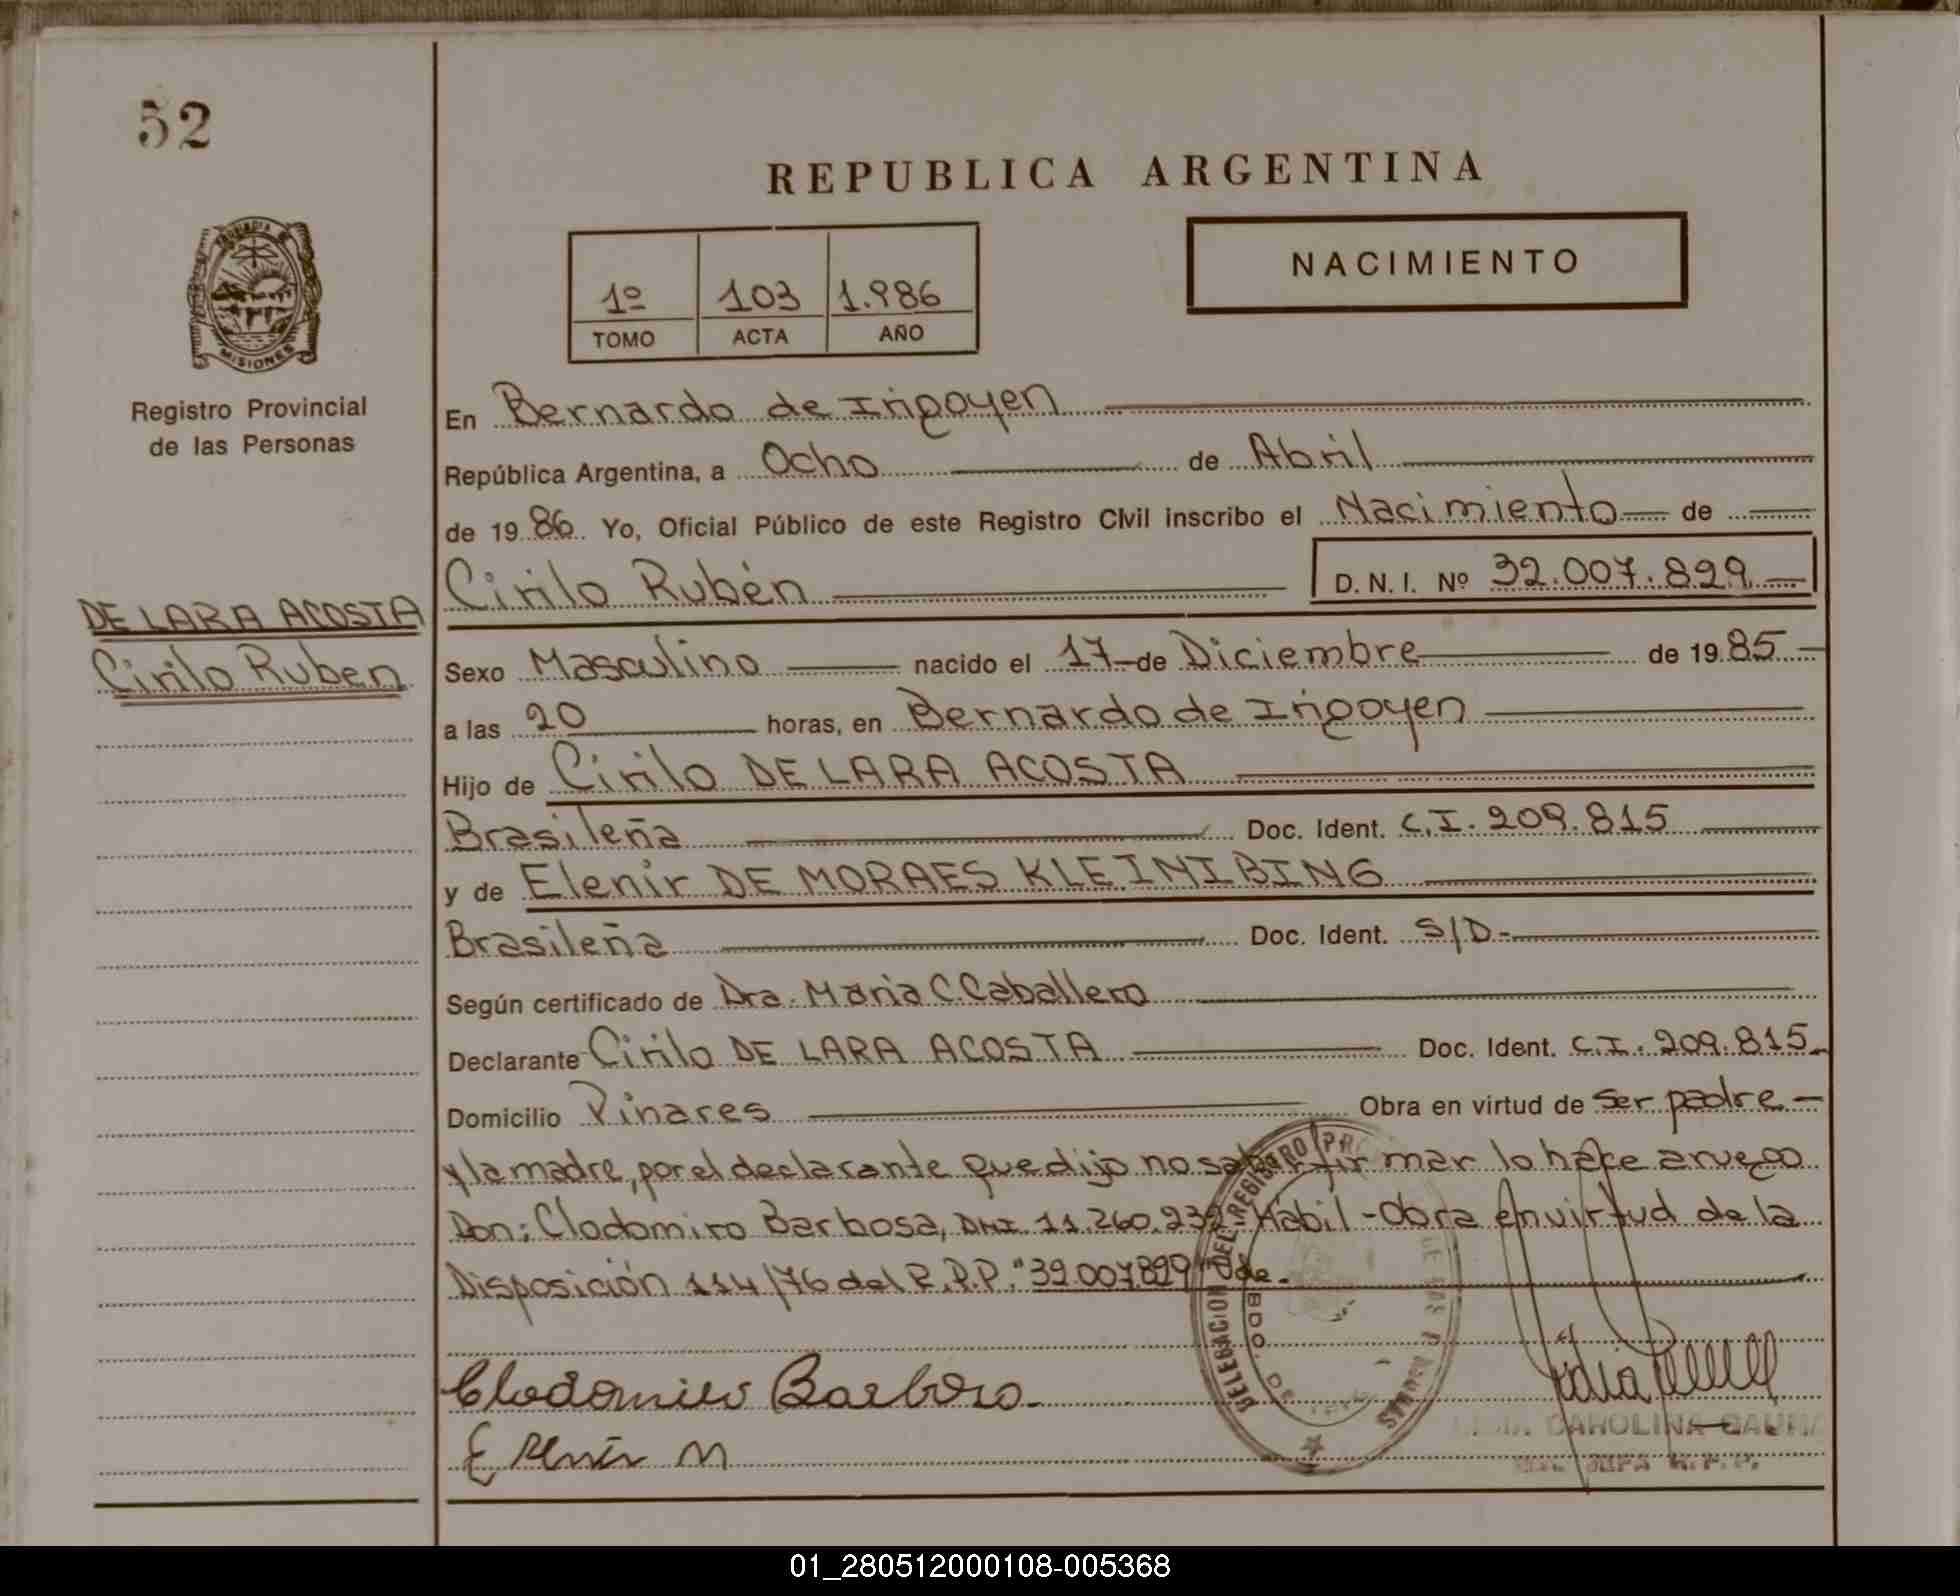 52
REPUBLICA ARGENTINA
NACIMIENTO
1º 103 1.986
TOMO ACTA AÑO
MISIONES
Registro Provincial
de las Personas
DE LARA ACOSTA
Cirilo Ruben
En Bernardo de Irigoyen
República Argentina, a Ocho de Abril
de 1986. Yo, Oficial Público de este Registro Civil inscribo el Nacimiento de
Cirilo Rubén D.N.I. Nº 32.007.829
Sexo Masculino nacido el 17 de Diciembre de 1985
a las 20 horas, en Bernardo de Irigoyen
Hijo de Cirilo DE LARA ACOSTA
Brasileña Doc. Ident. C.I. 209.815
y de Elenir DE MORAES KLEINIBING
Brasileña Doc. Ident. S/D-
Según certificado de Dra. Maria C. Caballero
Declarante Cirilo DE LARA ACOSTA Doc. Ident. C.I. 209.815
Domicilio Pinares Obra en virtud de Ser padre
y la madre, por el declarante que dijo no saber firmar lo hace a ruego
Don: Clodomiro Barbosa, DNI 11.260.232 Habil - Obra en virtud de la
Disposición 114/76 del R.P.P. "32.007.829" Vde.
DELEGACION DEL REGISTRO
BDO.
Clodomiro Barboso
Elenir M
CAROLINA
JEFA R.P.P.
01_280512000108-005368